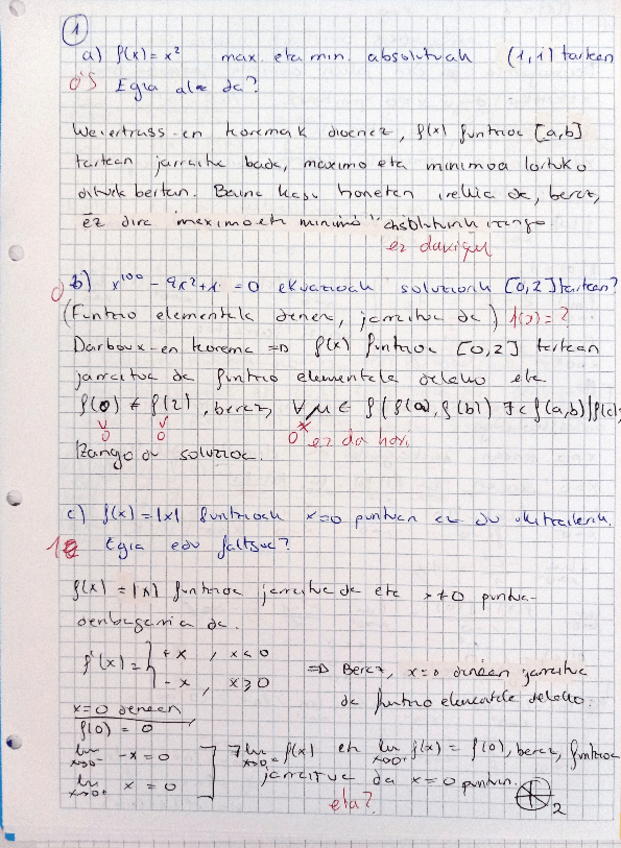 1
a) f(x) = x² max. eta min. absolutuak (1,1) tartean
0'5 Egia al da?
Weiertrass-en teoremak dioenez, f(x) funtzioa [a,b]
tartean jarraitua bada, maximo eta minimoa lortuko
ditu bertan. Baina kasu honetan irekia da, beraz,
ez dira maximo eta minimo absolutuak izango.
ez dakigu
0 b) x¹⁰⁰ - 9x² + 1 = 0 ekuazioak soluziorik [0,2] tartean?
(Funtzio elementala denez, jarraitua da) f(x) = ?
Darboux-en teorema => f(x) funtzioa [0,2] tartean
jarraitua da funtzio elementala delako eta
f(0) ≠ f(2), beraz, ∀μ ∈ f(f(a), f(b)) ∃c f(a,b) | f(c)
v v
0 0 0 ez da hori
Izango du soluzioa.
c) f(x) = |x| funtzioak x=0 puntuan ez du ukitzailerik.
Egia edo faltsua?
f(x) = |x| funtzioa jarraitua da eta x≠0 puntua-
denbagarria da.
f'(x) = +x , x<0
-x , x≥0
=> Beraz, x=0 denean jarraitua
da funtzio elementala delako.
x=0 denean
f(0) = 0
lim x→0⁻ -x = 0
lim x→0⁺ x = 0
∃ lim x→0⁻ f(x) eta lim x→0⁺ f(x) = f(0), beraz, funtzioa
jarraitua da x=0 puntuan.
eta?
2